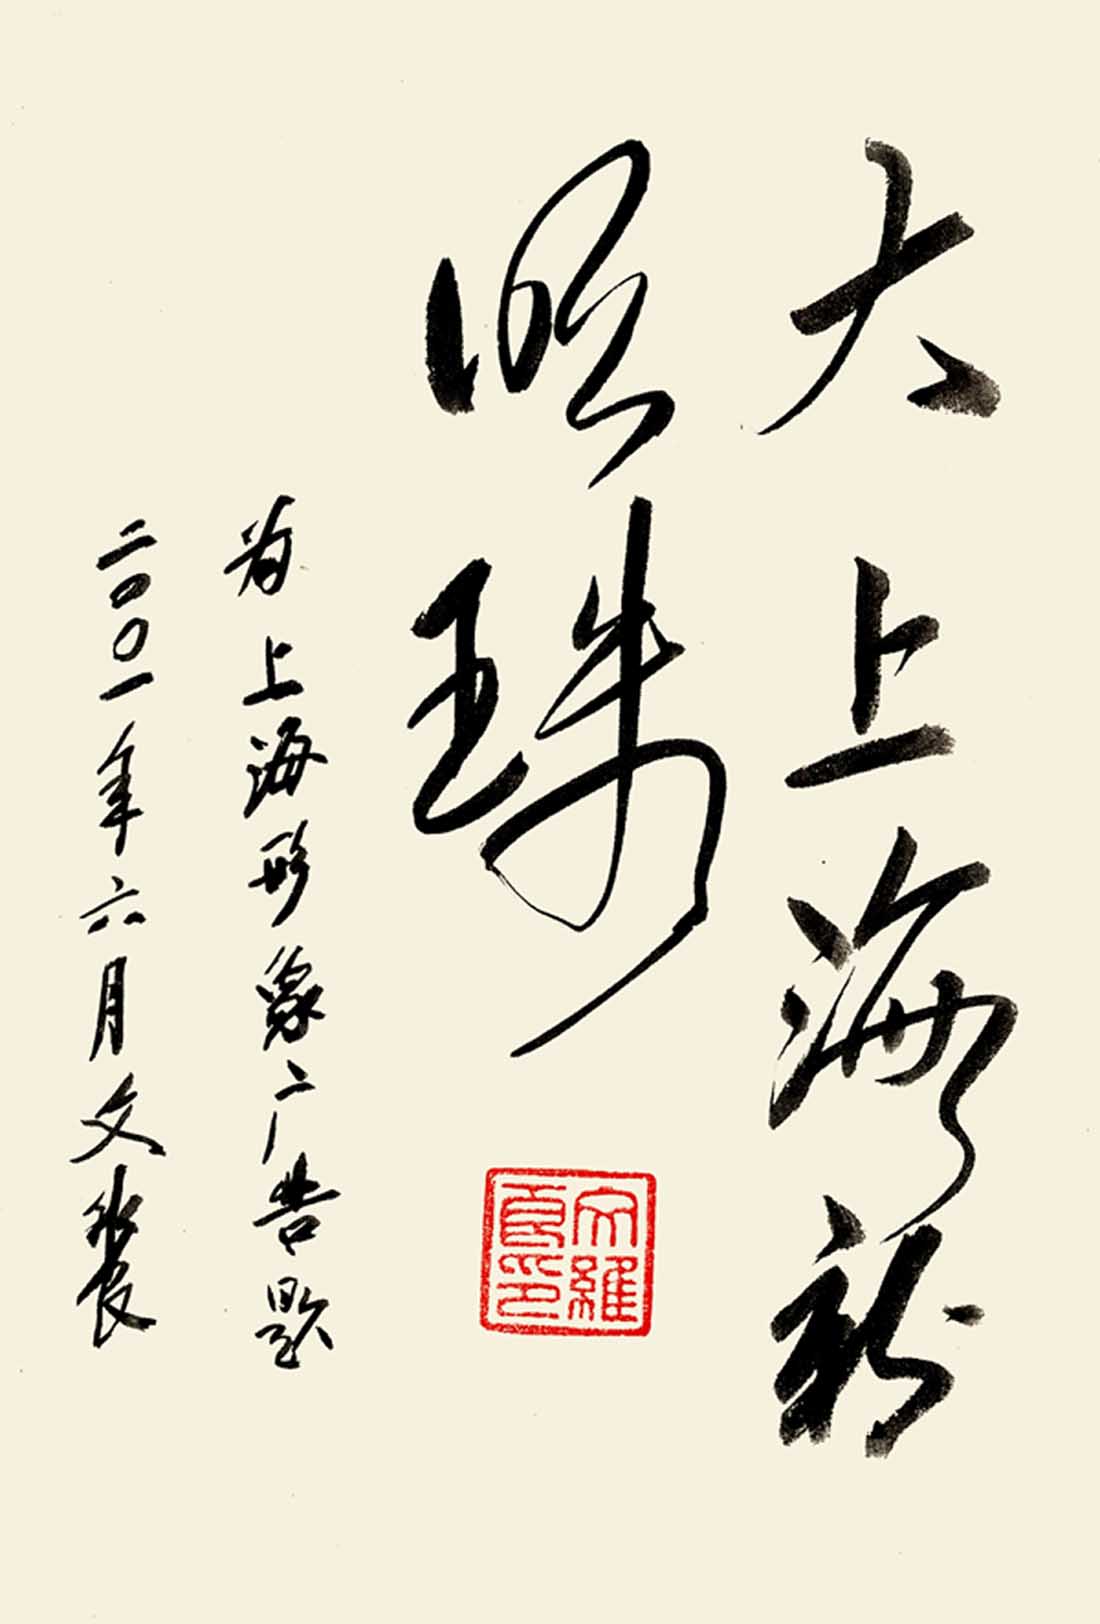 大上海新
明珠
为上海形象广告题
二〇〇一年六月文维良
文維良印